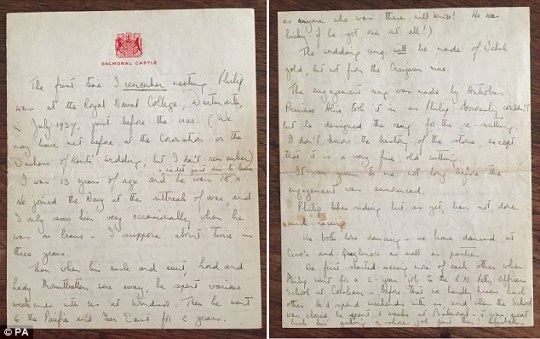 BALMORAL CASTLE
The first time I remember meeting Philip
was at the Royal Naval College, Dartmouth,
in July 1939, just before the war. (We
may have met before at the Coronation or the
Duchess of Kent's wedding, but I don't remember)
I was 13 years of age and he was 18
a cadet just due to leave
He joined the Navy at the outbreak of war, and
I only saw him very occasionally when he
was on leave - I suppose about twice in
three years.
Then when his uncle and aunt, Lord and
Lady Mountbatten were away, he spent various
weekends with us at Windsor. Then he went
to the Pacific and Far East for 2 years.
as anyone who was there will know! He was
lucky if he got one at all!)
The wedding ring will be made of Welsh
gold, but not from the Craigwen mine.
The engagement ring was made by Antrobus.
Princess Alice took it in as Philip obviously couldn't
but he designed the ring for the re-setting.
I don't know the history of the stone, except
that it is a very fine old cutting.
It was given to me not long before the
engagement was announced.
Philip likes riding but as yet, has not done
much racing.
We both love dancing - we have danced at
Ciro's and Quaglino's as well as parties.
We first started seeing more of each other when
Philip went for a 2-year job to the R.N. Petty Officers
School at Corsham -
before that we hardly knew each
other. He'd spend weekends with us, and when the School
was closed he spent 6 weeks at Balmoral - it was great
luck his getting a shore job first then
PA